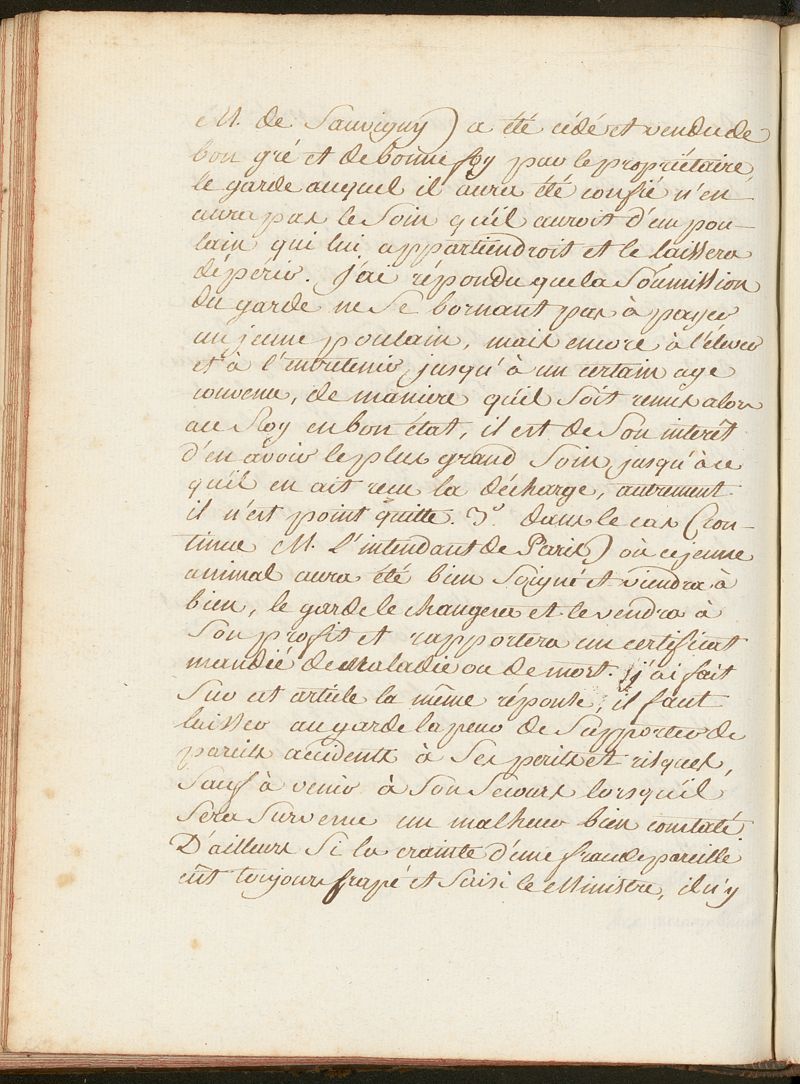 M. de Sauvigny) a été cédé et vendu de
bon gré et de bonne foy par le propriétaire,
le garde auquel il aura été confié n'en
aura pas le soin qu'il auroit d'un pou-
lain qui lui appartiendroit et le laissera
dépérir. J'ai répondu que la Soumission
du garde ne se bornant pas à payer
un jeune poulain, mais encore à l'élever
et à l'entretenir jusqu'à un certain age
convenu, de maniere qu'il soit remis alors
au Roy en bon état, il est de son interêt
d'en avoir le plus grand soin jusqu'à ce
qu'il en ait reçu la décharge, autrement
il n'est point quitte. 3°. dans le cas (con-
tinue M. l'intendant de Paris) où ce jeune
animal aura été bien soigné et viendra à
bien, le garde le changera et le vendra à
son profit et rapportera un certificat
mandié de maladie ou de mort. j'ai fait
sur cet article la même réponse; il faut
laisser au garde la peur de supporter de
pareils accidents à ses perils et risques,
sauf à venir à son secours lorsqu'il
sera survenu un malheur bien constaté.
D'ailleurs si la crainte d'une fraude pareille
eut toujours frapé et saisi le Ministre, il n'y